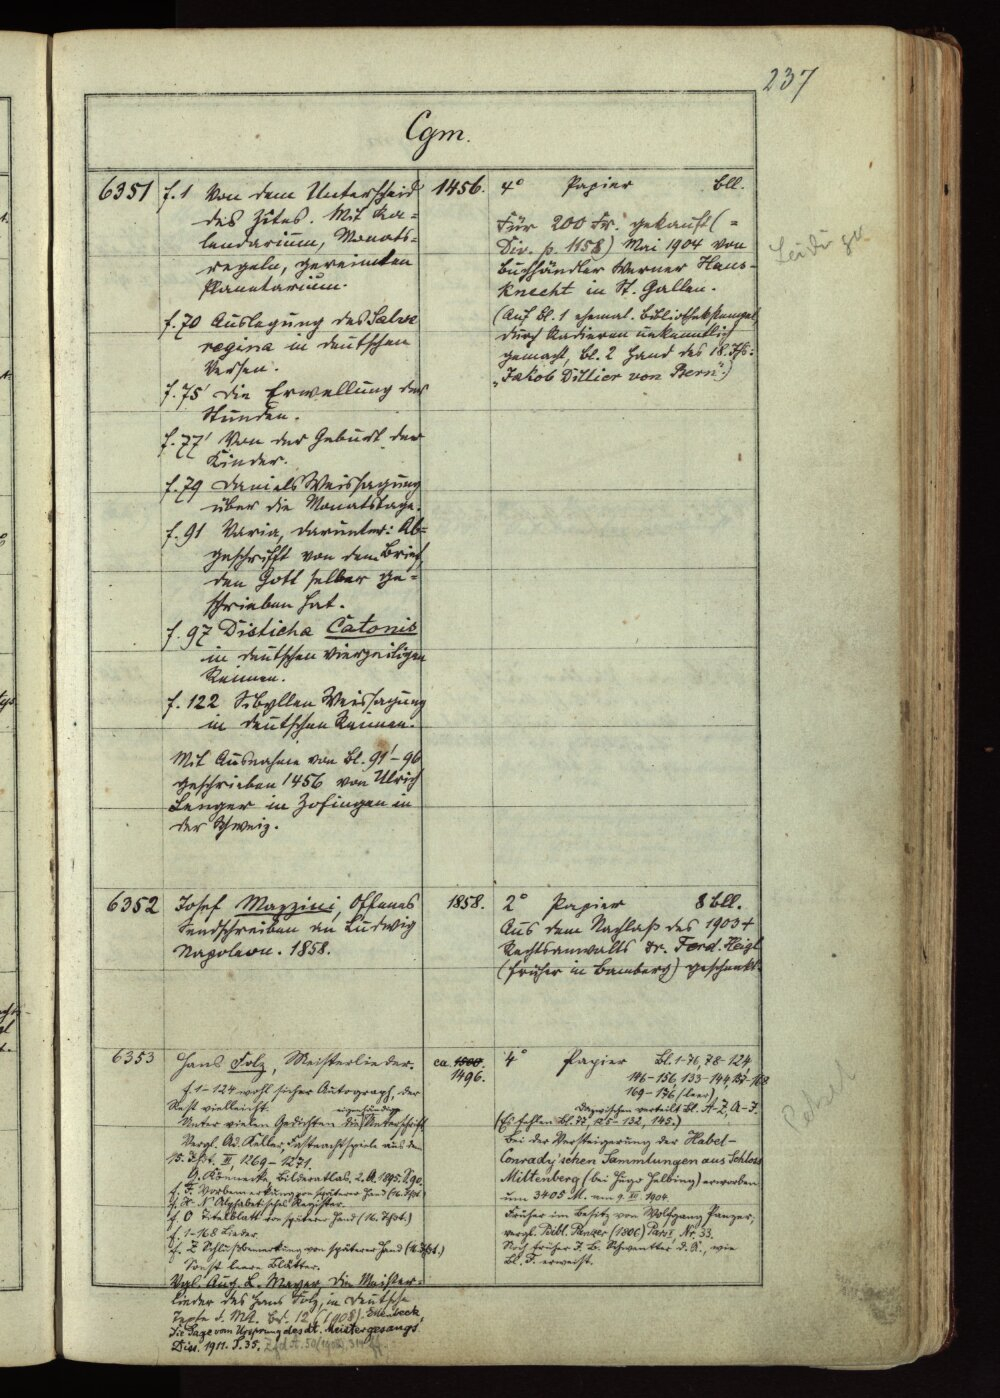 237
Cgm.
6351
f. 1 Von dem Unterscheid
des Zites. Mit Ka=
lendarium, Monats=
regeln, gereimten
Planetarium.
f. 70 Auslegung des Salve
regina in deutschen
Versen.
f. 75' Die Erwellung der
Stunden.
f. 77' Von der Geburt der
Kinder.
f. 79 Daniels Weissagung
über die Monatstage.
f. 91 Varia, darunter: Ab=
geschrifft von dem Brief,
den Gott selber ge=
schrieben hat.
f. 97 Disticha Catonis
in deutschen vierzeiligen
Reimen.
f. 122 Sibyllen Weissagung
in deutschen Reimen.
Mit Ausnahme von Bl. 91'-96
geschrieben 1456 von Ulrich
Lenger in Zofingen in
der Schweiz.
1456.
4° Papier Bll.
Für 200 Fr. gekauft (=
Div. p. 1158) Mai 1904 von
Buchhändler Werner Haus-
knecht in St. Gallen.
(Auf Bl. 1 ehemal. Bibliothekstempel
durch Radieren unkenntlich
gemacht, Bl. 2 Hand des 18. Jhs:
„Jakob Dillier von Bern".)
6352
Josef Mazzini, Offenes
Sendschreiben an Ludwig
Napoleon. 1858.
1858.
2° Papier 8 Bll.
Aus dem Nachlaß des 1903 †
Rechtsanwalts Dr. Ferd. Heigl
(früher in Bamberg) geschenkt.
6353
Hans Folz, Meisterlieder.
f. 1-124 wohl sicher Autograph, der
Rest vielleicht.
eigenhändige
Unter vielen Gedichten die Unterschrift
Vergl. Ad. Keller, Fastnachtspiele aus dem
15. Jhdt. III, 1269-1271.
G. Könnecke, Bilderatlas. 2. A. 1895. S. 90.
f. F. Vorbemerkung von späterer Hand (16. Jhdt.)
f. H-N Alphabetisches Register.
f. O Titelblatt von späterer Hand (16. Jhdt.)
f. 1-168 Lieder
f. Z Schlußbemerkung von späterer Hand (16. Jhdt.)
Sonst leere Blätter.
Vgl. Aug. L. Mayer, Die Meister=
lieder des Hans Folz, in Deutsche
Texte d. MA. Bd. 12 (1908). Ellenbeck,
Die Sage vom Ursprung des dt. Meistergesangs.
Diss. 1911. S. 35.
ca. 1500.
1496.
4° Papier Bl. 1-76, 78-124,
146-156, 133-144, 157-168
169-176 (leer)
dazwischen verteilt Bl. A-Z, A-F.
(Es fehlen Bl. 77, 125-132, 145.)
Bei der Versteigerung der Habel-
Conrady'schen Sammlungen aus Schloss
Miltenberg (bei Hugo Helbing) erworben
um 3405 M. am 9. XII 1904.
Früher im Besitz von Wolfgang Panzer,
vergl. Bibl. Panzer (1806) Pars I, Nr. 33.
Noch früher wie
Bl. F. erweist.